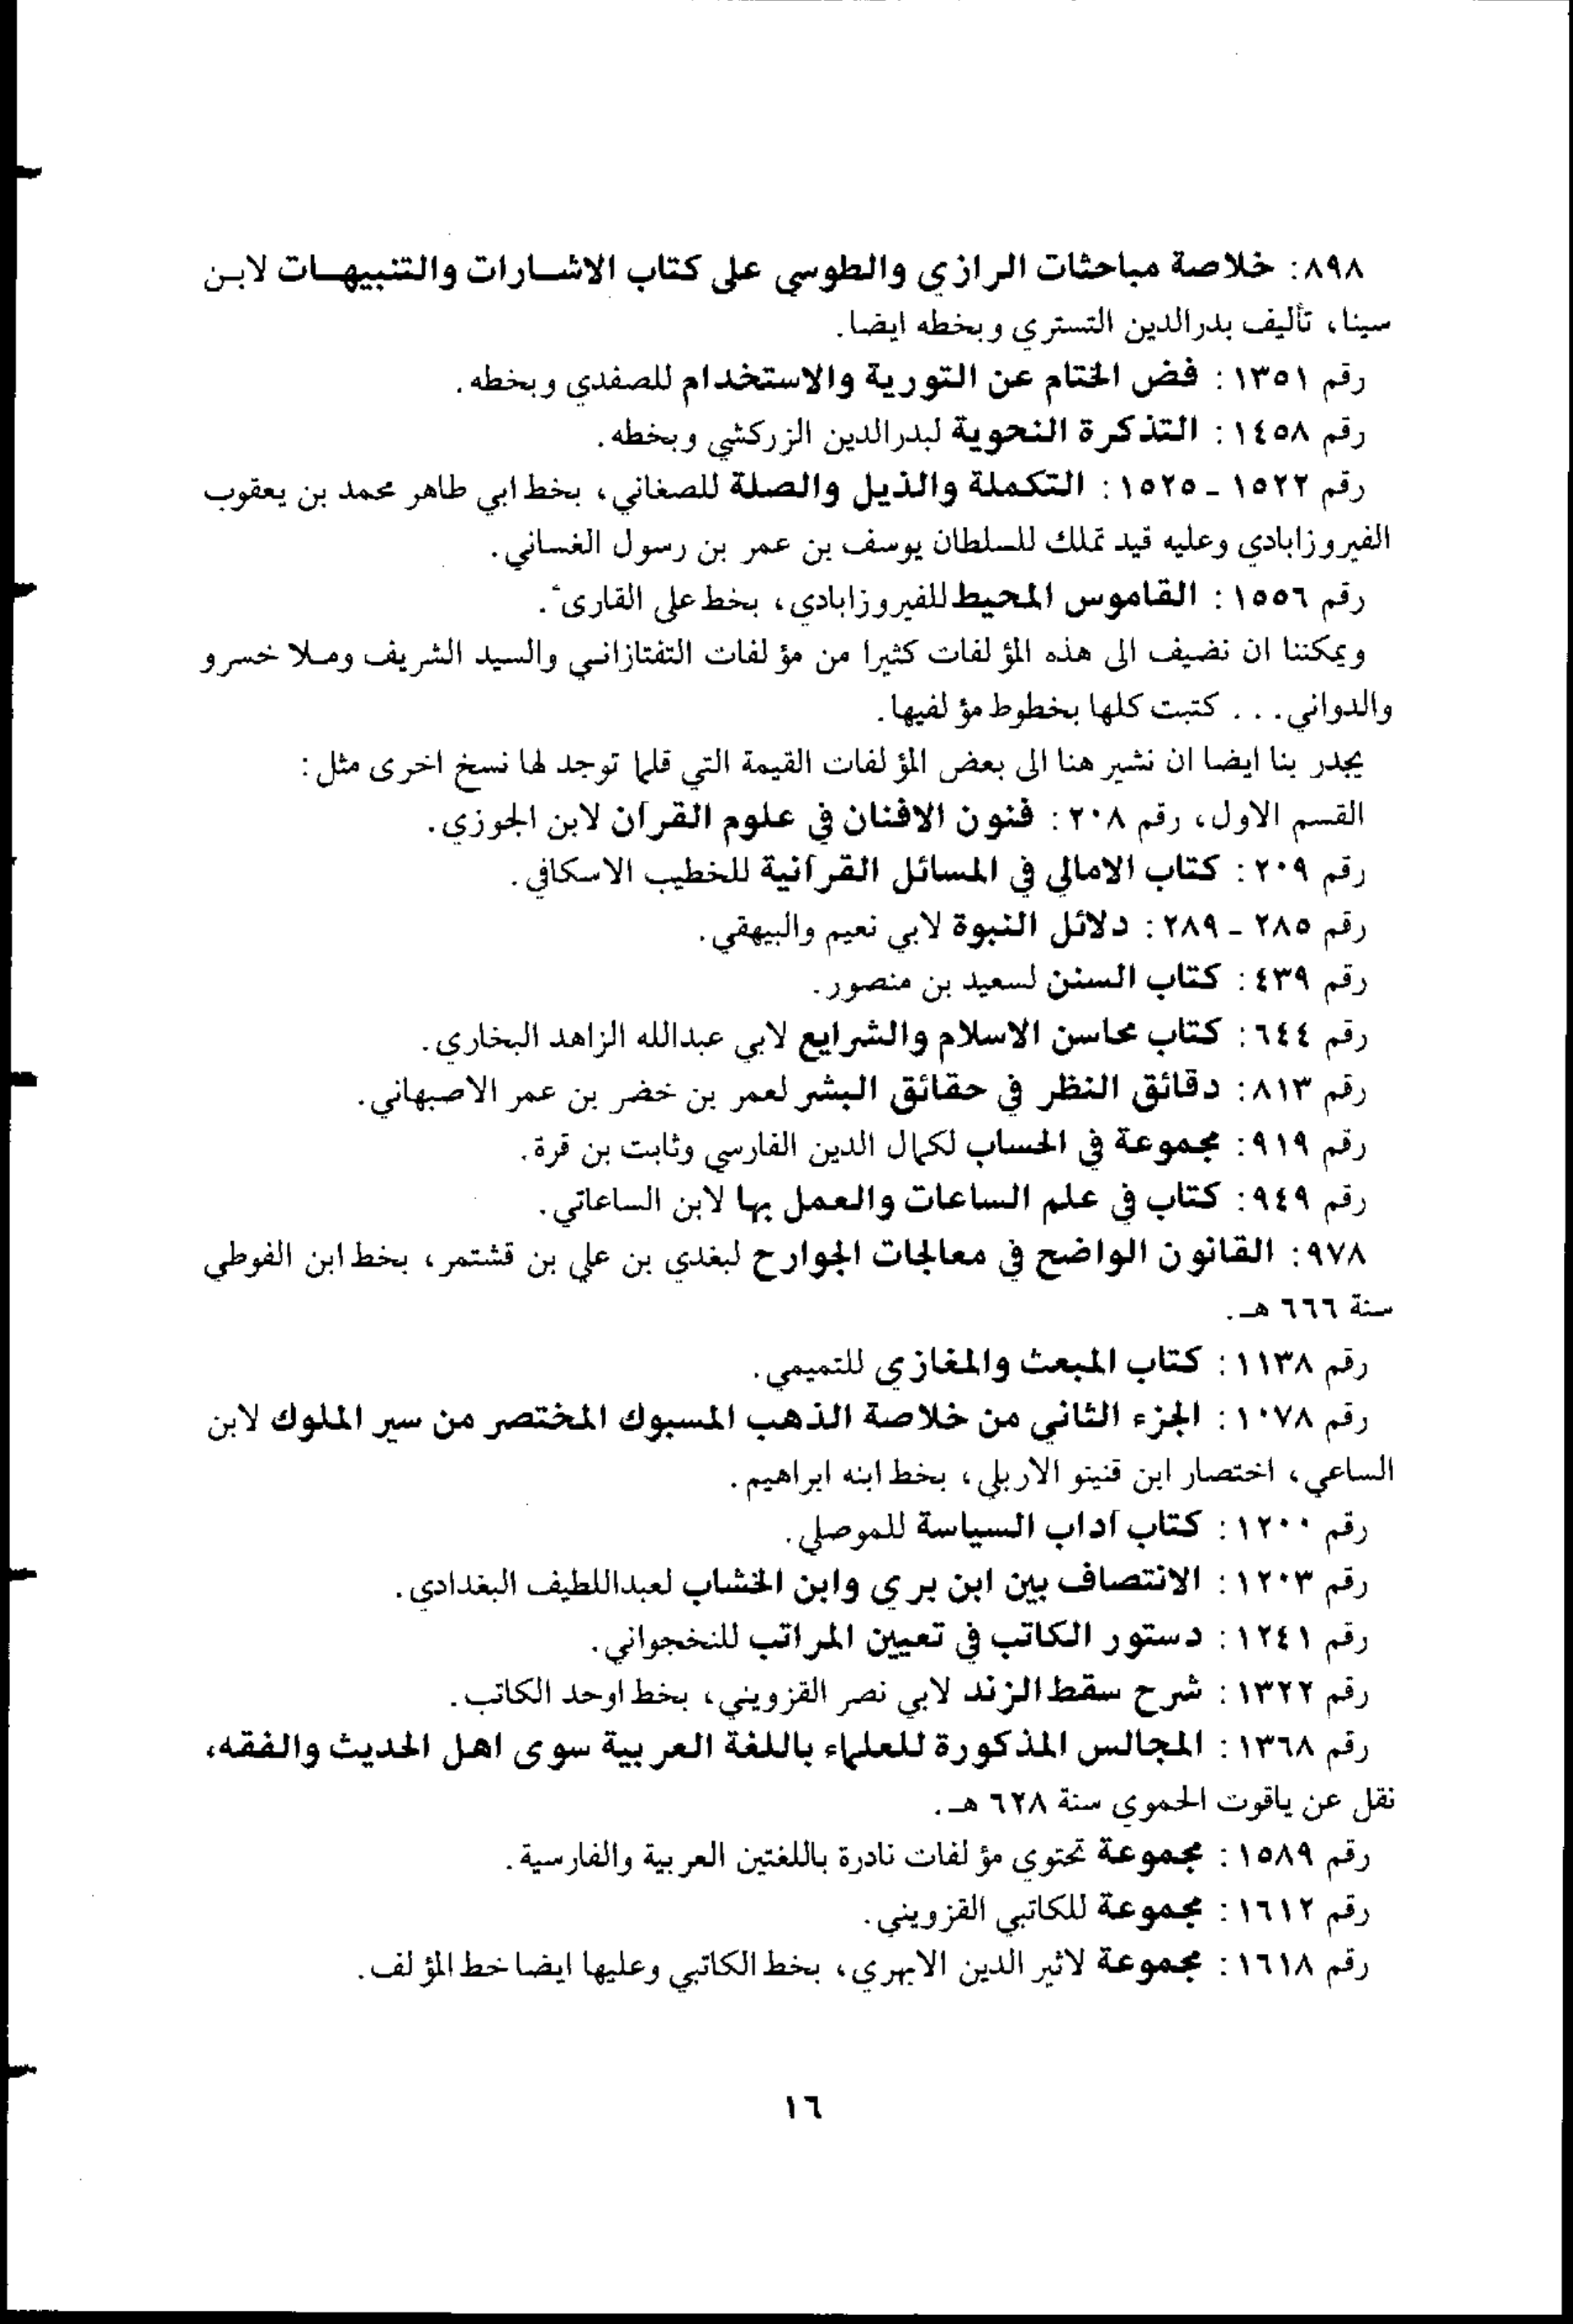 ٨٩٨: خلاصة مباحثات الرازي والطوسي على كتاب الاشارات والتنبيهات لابن
سينا، تأليف بدرالدين التستري وبخطه ايضا.
رقم ١٣٥١: فض الختام عن التورية والاستخدام للصفدي وبخطه.
رقم ١٤٥٨: التذكرة النحوية لبدرالدين الزركشي وبخطه.
رقم ١٥٢٢ - ١٥٢٥: التكملة والذيل والصلة للصغاني، بخط ابي طاهر محمد بن يعقوب
الفيروزابادي وعليه قيد تملك للسلطان يوسف بن عمر بن رسول الغساني.
رقم ١٥٥٦: القاموس المحيط للفيروزابادي، بخط على القارىء.
ويمكننا ان نضيف الى هذه المؤلفات كثيرا من مؤلفات التفتازاني والسيد الشريف وملا خسرو
والدواني... كتبت كلها بخطوط مؤلفيها.
يجدر بنا ايضا ان نشير هنا الى بعض المؤلفات القيمة التي قلما توجد لها نسخ اخرى مثل:
القسم الاول، رقم ٢٠٨: فنون الافنان في علوم القرآن لابن الجوزي.
رقم ٢٠٩: كتاب الامالي في المسائل القرآنية للخطيب الاسكافي.
رقم ٢٨٥ - ٢٨٩: دلائل النبوة لابي نعيم والبيهقي.
رقم ٤٣٩: كتاب السنن لسعيد بن منصور.
رقم ٦٤٤: كتاب محاسن الاسلام والشرايع لابي عبدالله الزاهد البخاري.
رقم ٨١٣: دقائق النظر في حقائق البشر لعمر بن خضر بن عمر الاصبهاني.
رقم ٩١٩: مجموعة في الحساب لكمال الدين الفارسي وثابت بن قرة.
رقم ٩٤٩: كتاب في علم الساعات والعمل بها لابن الساعاتي.
٩٧٨: القانون الواضح في معالجات الجوارح لبغدي بن علي بن قشتمر، بخط ابن الفوطي
سنة ٦٦٦ هـ.
رقم ١١٣٨: كتاب المبعث والمغازي للتميمي.
رقم ١٠٧٨: الجزء الثاني من خلاصة الذهب المسبوك المختصر من سير الملوك لابن
الساعي، اختصار ابن قنينو الاربلي، بخط ابنه ابراهيم.
رقم ١٢٠٠: كتاب آداب السياسة للموصلي.
رقم ١٢٠٣: الانتصاف بين ابن بري وابن الخشاب لعبداللطيف البغدادي.
رقم ١٢٤١: دستور الكاتب في تعيين المراتب للنخجواني.
رقم ١٣٢٢: شرح سقط الزند لابي نصر القزويني، بخط اوحد الكاتب.
رقم ١٣٦٨: المجالس المذكورة للعلماء باللغة العربية سوى اهل الحديث والفقه،
نقل عن ياقوت الحموي سنة ٦٢٨ هـ.
رقم ١٥٨٩: مجموعة تحتوي مؤلفات نادرة باللغتين العربية والفارسية.
رقم ١٦١٢: مجموعة للكاتبي القزويني.
رقم ١٦١٨: مجموعة لاثير الدين الابهري، بخط الكاتبي وعليها ايضا خط المؤلف.
١٦